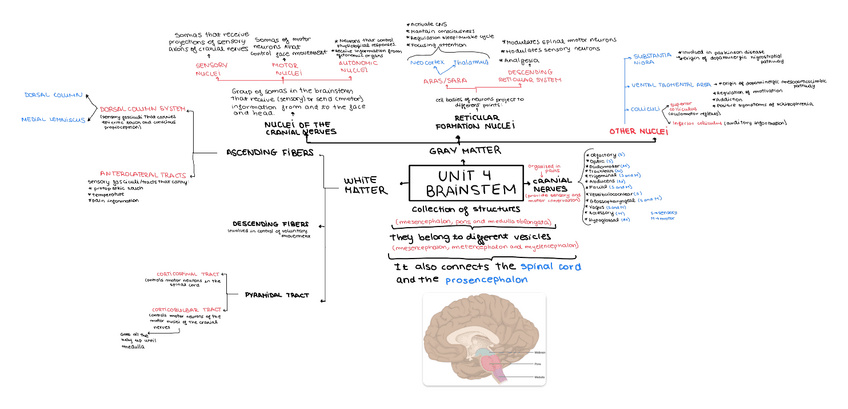 Somas that receive
projections of sensory
axons of cranial nerves
SENSORY
NUCLEI
Somas of motor
neurons that
control face movement
MOTOR
NUCLEI
* Neurons that control
physiological responses
* Receive information from
autonomic organs
AUTONOMIC
NUCLEI
Group of somas in the brainstem
that receive (sensory) or send (motor)
information from and to the face
and head.
NUCLEI OF THE
CRANIAL NERVES
* Activate CNS
* Maintain consciousness
* Regulation sleep/wake cycle
* Focusing attention
NEOCORTEX
Thalamus
ARAS/SARA
* Modulates spinal motor neurons
* Modulates sensory neurons
* Analgesia
DESCENDING
RETICULAR SYSTEM
cell bodies of neurons project to
different points:
RETICULAR
FORMATION NUCLEI
SUBSTANTIA
NIGRA
* Involved in parkinson disease
* Origin of dopaminergic nigrostriatal
pathway
VENTAL TAGMENTAL AREA
* Origin of dopaminergic mesocorticolimbic
pathway
* Regulation of motivation
* Addiction
* Positive symptoms of schizophrenia
COLLICULI
Superior
colliculus
(oculomotor reflexes)
Inferior colliculus (auditory information)
OTHER NUCLEI
GRAY MATTER
DORSAL COLUMN
MEDIAL LEMNISCUS
DORSAL COLUMN SYSTEM
(sensory fascicles that convey
epicritic touch and conscious
proprioception)
ANTEROLATERAL TRACTS
sensory fascicles/tracts that carry:
* protopathic touch
* temperature
* pain information
ASCENDING FIBERS
WHITE
MATTER
DESCENDING FIBERS
involved in control of voluntary
movement
PYRAMIDAL TRACT
CORTICOSPINAL TRACT
controls motor neurons in the
spinal cord
CORTICOBULBAR TRACT
controls motor neurons of the
motor nuclei of the cranial
nerves
Goes all the
way up until
medulla
UNIT 4
BRAINSTEM
Organized in
pairs
CRANIAL
NERVES
(provide sensory and
motor innervation)
* Olfactory (S)
* Optic (S)
* Oculomotor (M)
* Trochlear (M)
* Trigeminal (S and M)
* Abducens (M)
* Facial (S and M)
* Vestibulocochlear (S)
* Glossopharyngeal (S and M)
* Vagus (S and M)
* Accessory (M)
* Hypoglossal (M)
S=sensory
M=motor
collection of structures
(mesencephalon, pons and medulla oblongata)
They belong to different vesicles
(mesencephalon, metencephalon and myelencephalon)
It also connects the spinal cord
and the prosencephalon